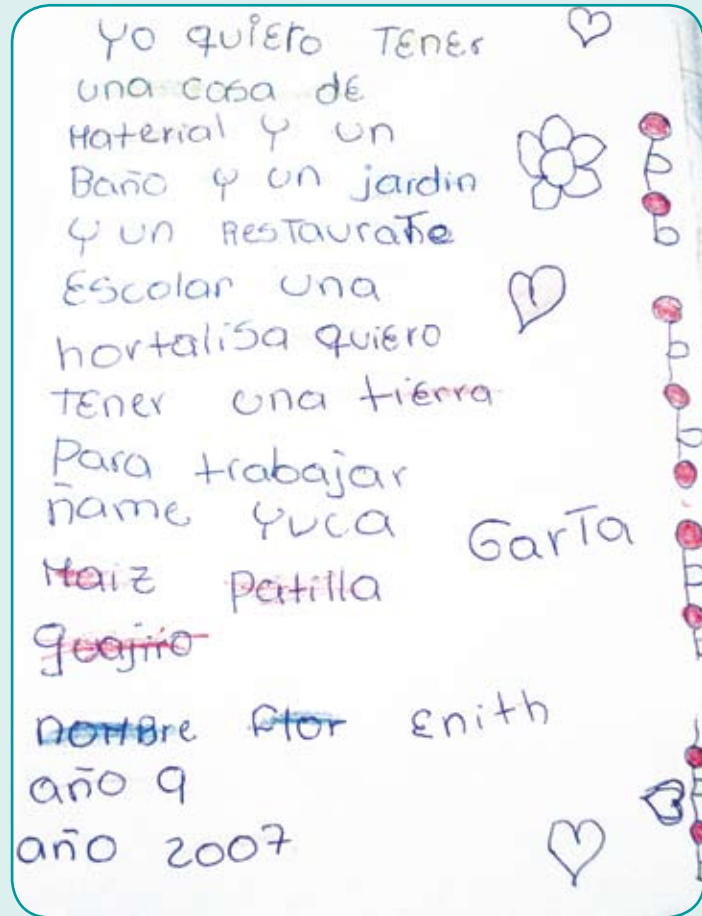 Yo quiero Tener
una casa de
Material y un
Baño y un jardin
y un Restaurante
Escolar una
hortalisa quiero
Tener una tierra
Para trabajar
ñame yuca
GarTa
Maiz Patilla
guajiro
nomBre Flor Enith
año 9
año 2007